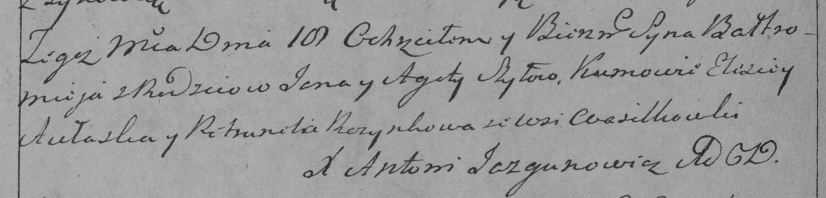 Tegoż Mca Dnia 18 Ochrzciłem y Bierzm Syna Bałtro-
mieja z Rodziców Jana y Agaty Szyłow, Kumowie Elizey
Aułaska y Petrunela Rozynkowa ze wsi Wasilkowki
X Antoni Jazgunowicz